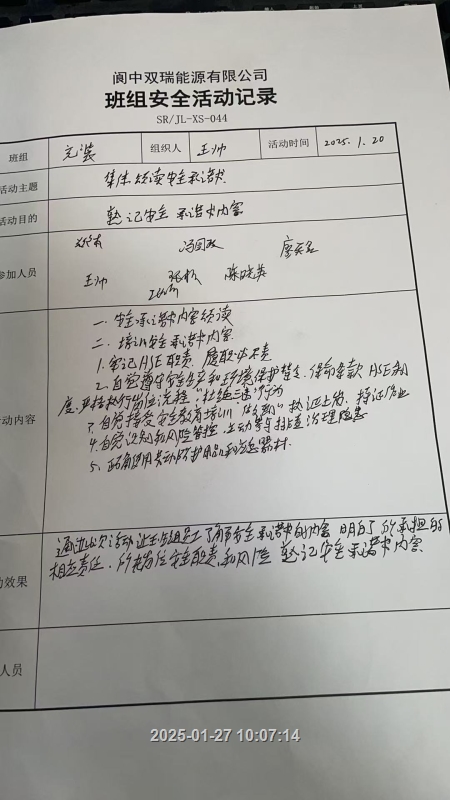 阆中双瑞能源有限公司
班组安全活动记录
SR/JL-XS-044
班组 充装 组织人 王帅 活动时间 2025.1.20
活动主题 集体续读安全承诺书
活动目的 熟记安全承诺书内容
参加人员 冯国政
王帅 陈晓英
一.安全承诺书内容续读
二.培训安全承诺书内容
1.牢记HSE职责,履职尽责
2.自觉遵守安全生产和环境保护禁令、保命条款、HSE制
度,严格执行岗位流程,杜绝三违行为
3.自觉接受安全教育培训 执证上岗、持证作业
4.自觉识别和风险管控,主动参与排查治理隐患
动内容
5.正确使用劳动防护用品和应急器材.
通过此次活动让班组员工了解安全承诺书的内容 明白了所承担的
相应责任.所在岗位安全职责,和风险 熟记安全承诺书内容
动效果
人员
2025-01-27 10:07:14